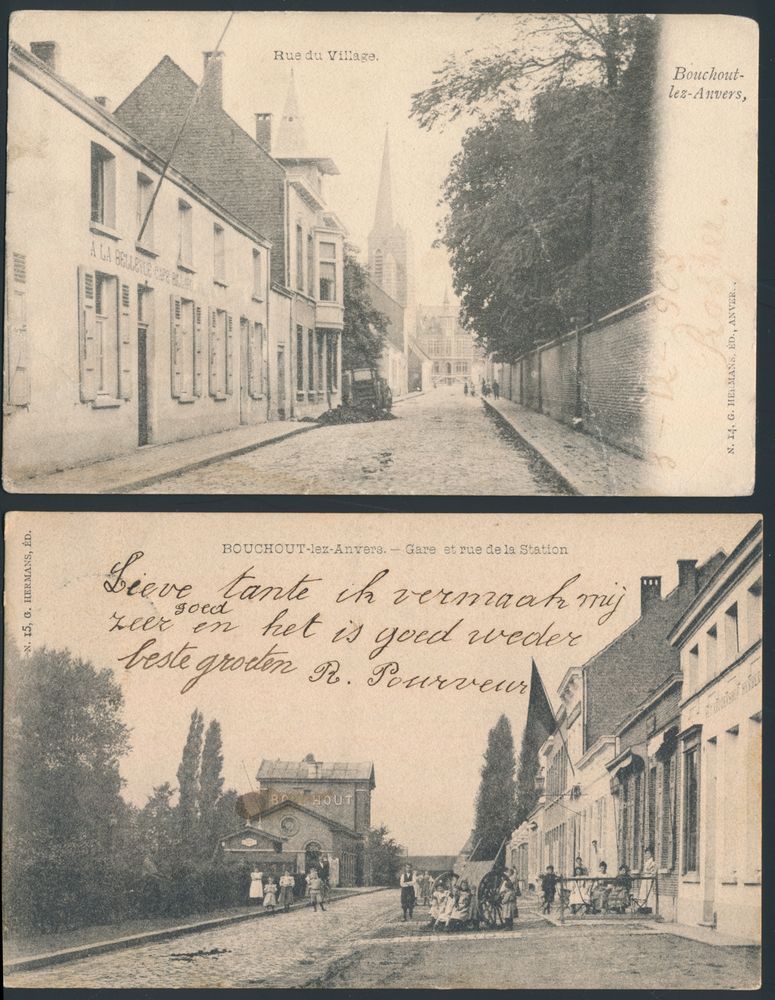 Rue du Village.
Bouchout-
lez-Anvers,
A LA BELLEVUE CAFÉ BILLARD
N. 14, G. HERMANS, ÉD., ANVER..
BOUCHOUT-lez-Anvers. — Gare et rue de la Station
N. 15, G. HERMANS, ÉD.
Lieve tante ik vermaak mij
zeer goed en het is goed weder
beste groeten R. Pourveur
BOUCHOUT